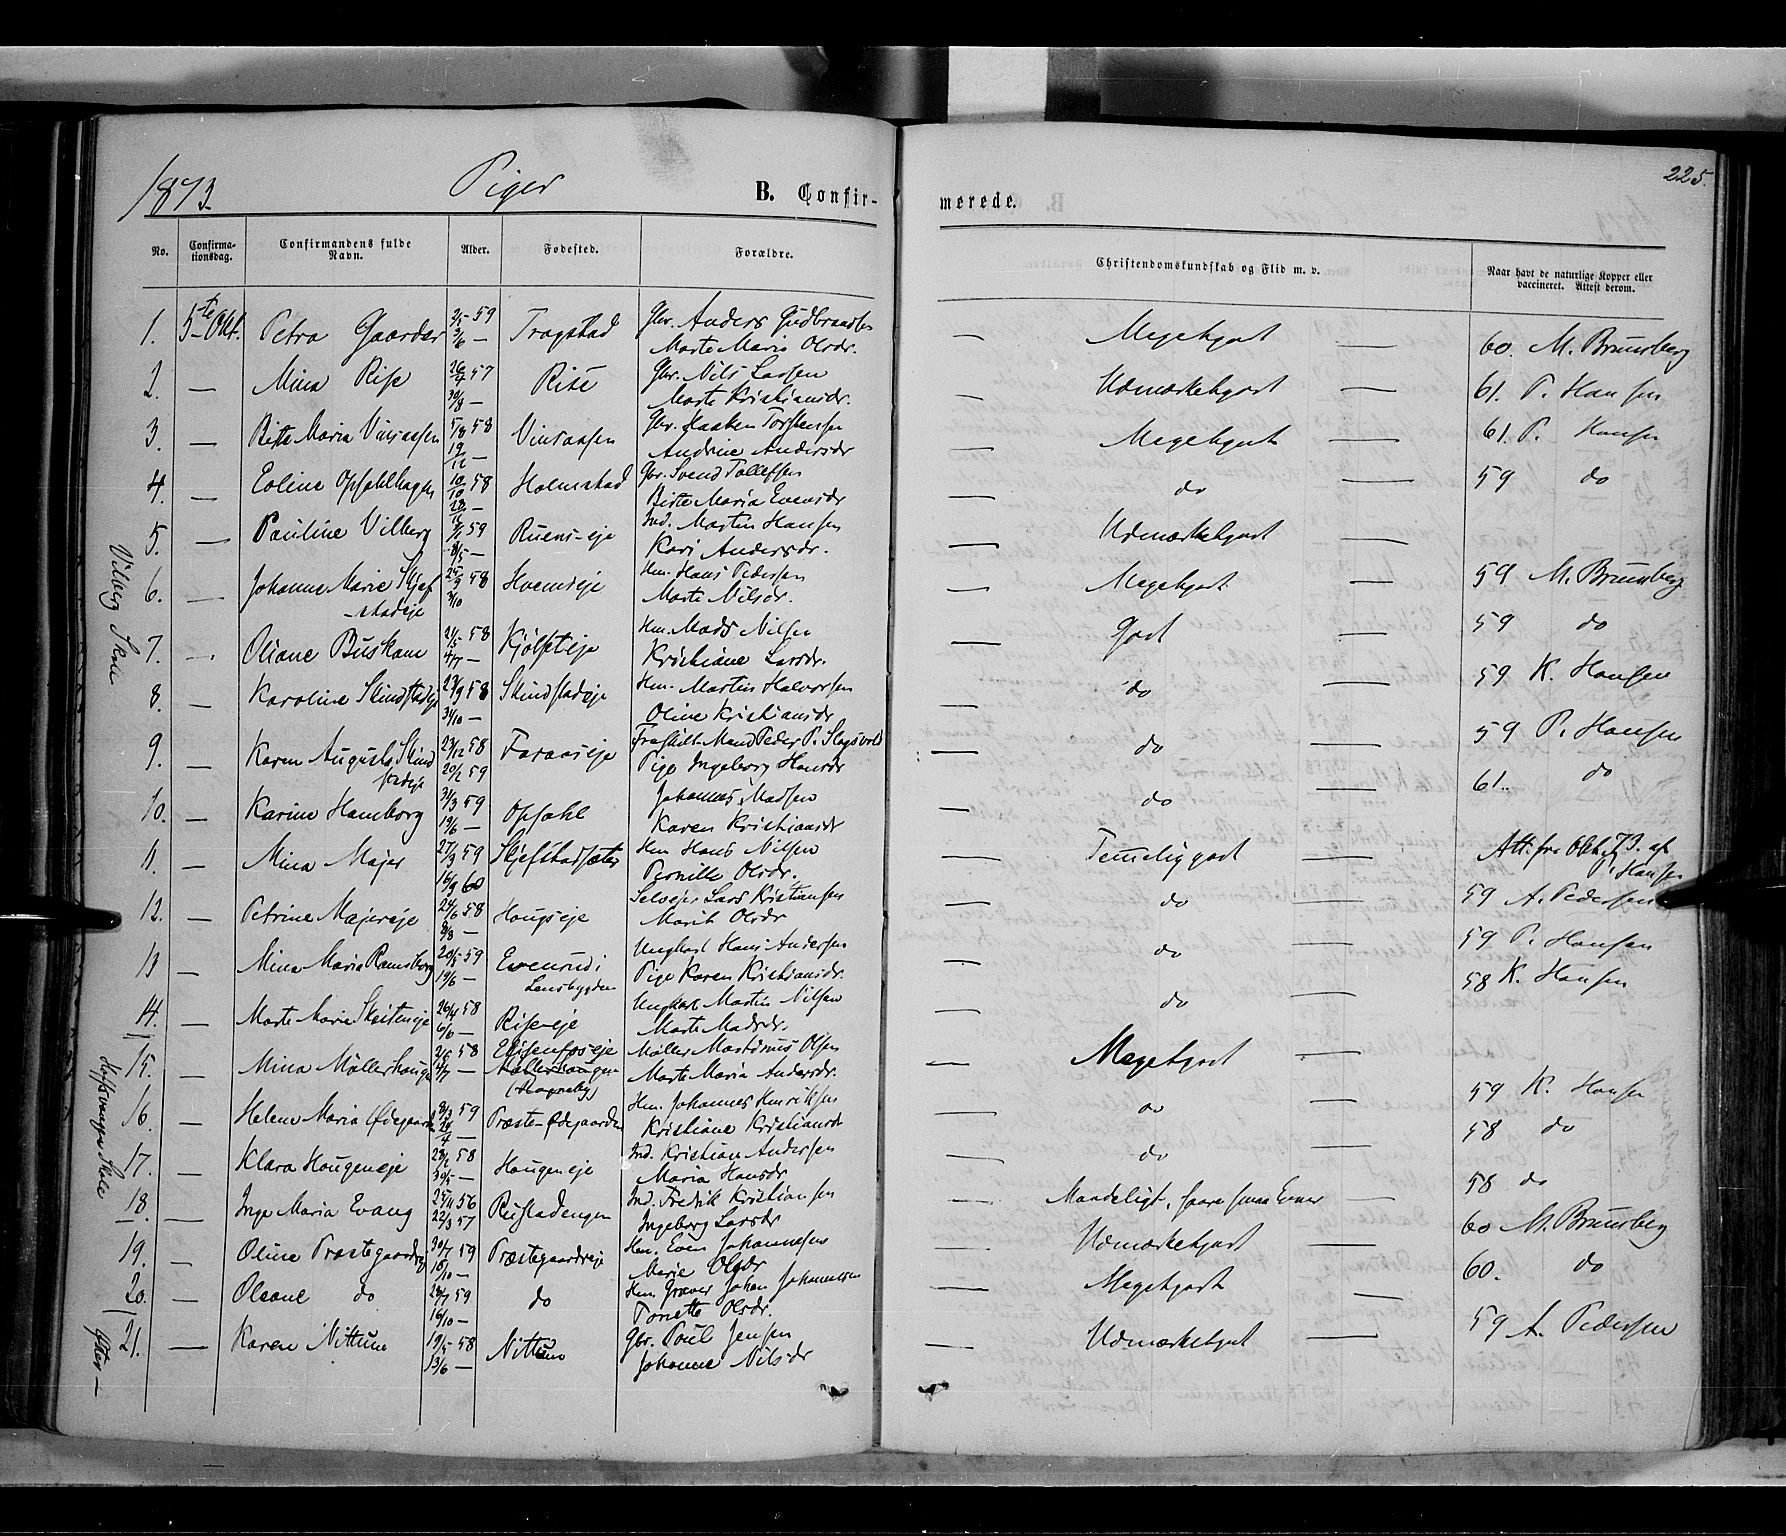 1873.
Piger
B. Confir-
merede.
225.
No.
Confirma-
tionsdag.
Confirmandens fulde
Navn.
Alder.
Fødested.
Forældre.
Christendomskundskab og Flid m. v.
Naar havt de naturlige Kopper eller
vaccineret. Attest derom.
Vilberg Skole
1. 5te Okt. Petra Gaarder 59 Trogstad Gbr. Anders Gudbrandsen
Marte Marie Olsdr. — Megetgodt — 60. M. Brunsberg
2. — Mina Rise 26/4 57 Rise Gbr. Nils Larsen
30/8 — Marte Kristiansdr. — Udmærketgodt — 61. P. Hansen
3. — Maria 58 Gbr. Haaken Torstensen
— Andrine Andersdr — Megetgodt — 61. P. Hansen
4. — Eoline Opsahlhagen 10/10 58 Holmstad Gbr. Svend Tollefsen
— Maria Evensdr — do — 59 do
5. — Pauline Vilberg 59 Ruens-eje Ind. Martin Hansen
— Kari Andersdr. — Udmærketgodt —
6. — Johanne Marie Skjef-
stadeje 25/9 58 Hvemseje Hm. Hans Pedersen
3/10 Marte Nilsdr. — Megetgodt — 59 M. Brunsberg
7. — Oliane Buskum 58 Kjølseteje Hm. Mads Nilsen
4/7 — Kristiane Larsdr. — Godt — 59 do
8. — Karoline Skindstadeje 23/9 58 Skindstadeje Hm. Martin Halvorsen
31/10 — Oline Kristiansdr — do — 59 K. Hansen
9. — Karen Augusta Skind
stadeje 23/12 58 Faraaseje Fraskilt Mand Peder P. Slagsvold
20/2 59 Pige Ingeborg Hansdr — do — 59 P. Hansen
10. — Karine Hamborg 31/3 59 Opsahl Johannes Madsen
19/6 — Karen Kristiansdr — do — 61.. do
11. — Mina Majer 27/3 59 Skjefstadsæter Hm Hans Nilsen
16/9 60 Pernille Olsdr. — Temeliggodt — Att. fra Okt. 73. af
P. Hansen
12. — Petrine Majereje 24/6 58 Hougseje Selvejer Lars Kristiansen
8/8 — Marit Olsdr — do — 59 A. Pedersen
13 — Mina Maria Ramsberg 20/5 59 Evenrud i
Lensbygden Ungkarl Hans Andersen
19/6 — Pige Karen Kristiansdr. — do — 59 P. Hansen
14. — Marte Marie 26/4 58 Rise-eje Ungkarl Martin Nilsen
6/10 — Marte Madsdr. — do — 58 K. Hansen
15. — Mina Møllerhaugen 58 Møller Martinus Olsen
4/7 — Marte Maria Andersdr. — Megetgodt —
16. — Helene Maria Ødegaarden 59 Præste-Ødegaarden Hm. Johannes Henriksen
— Kristiane Kristiansdr — do — 59 K. Hansen
17. — Klara Hougeneje 58 Hougeneje Ind. Kristian Andersen
30/5 — Maria Hansdr — do — 58 do
18. — Inge Maria Evang 25/11 56 Rustadengen Ind. Fredrik Kristiansen
22/3 57 Ingeborg Larsdr — Maadeligt, saare smaa Evner 58 do
19. — Oline Præstegaardseje 30/7 59 Præstegaardseje Hm. Even Johannesen
18/10 — Marie Olsdr — Udmærketgodt — 60 M. Brunsberg
20. — Oleane do 59 do Hm. Graver Johan Johannesen
16/10 — Tonette Olsdr. — Megetgodt — 60. do
21. — Karen Nittun 19/5 58 Nittun Gbr. Poul Jensen
13/6 — Johanne Nilsdr — Udmærketgodt — 59 A. Pedersen